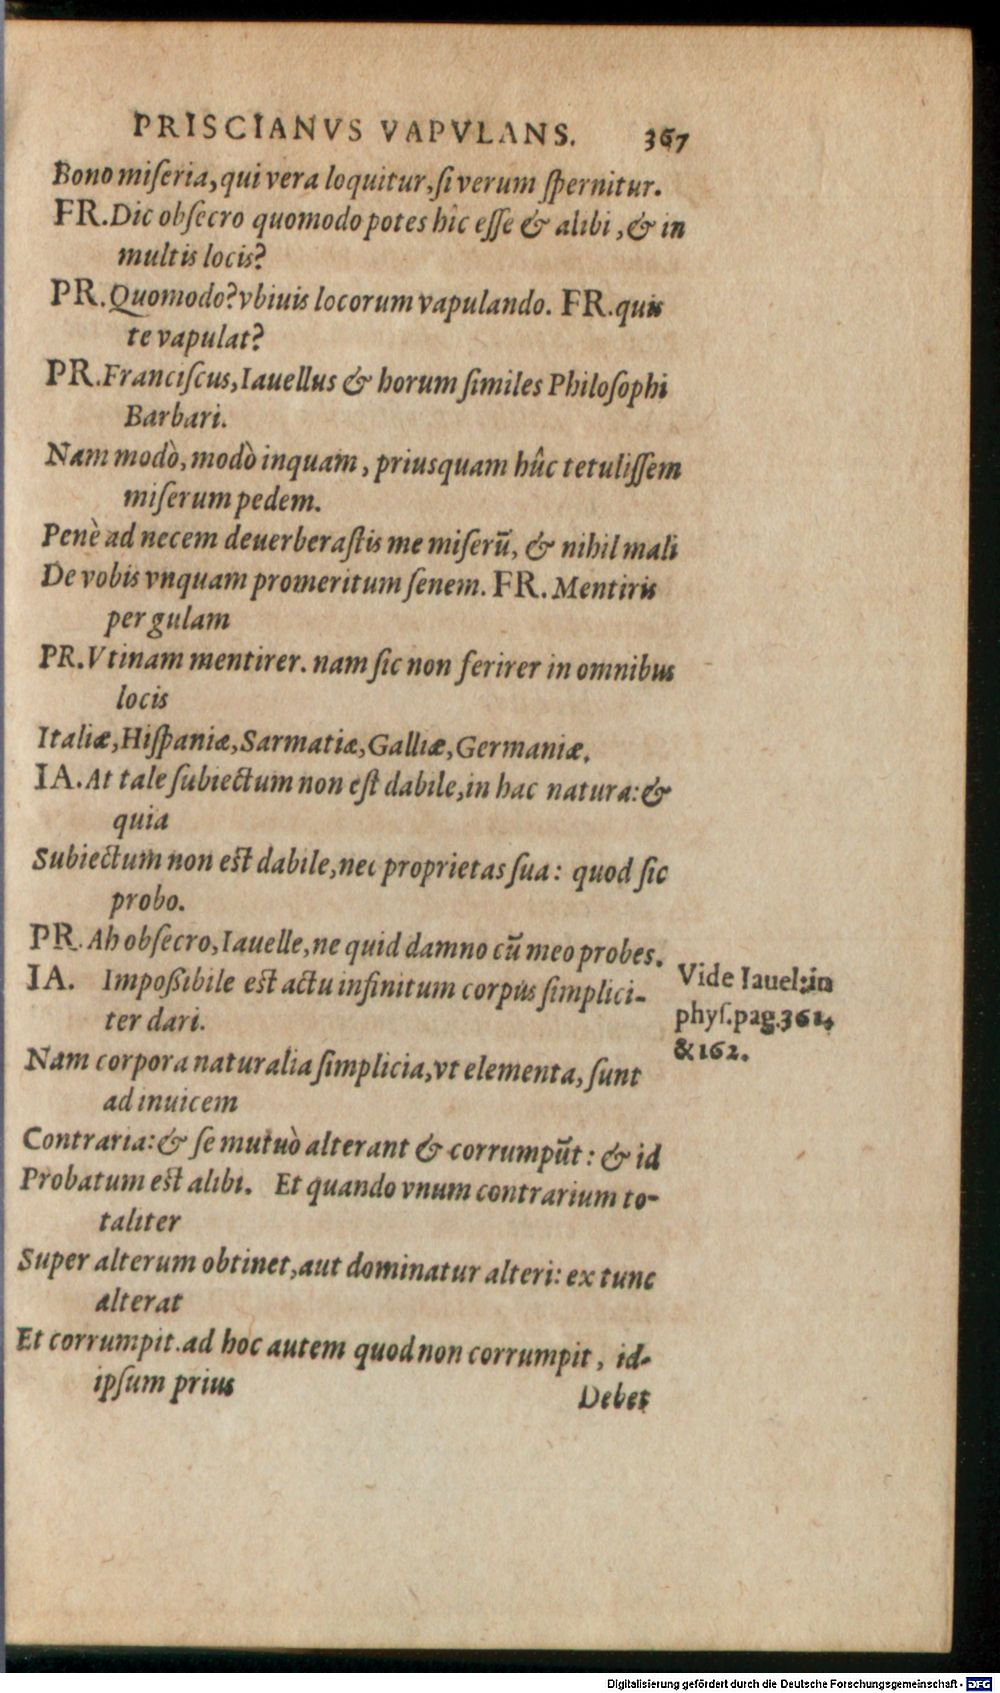 PRISCIANVS VAPVLANS. 367
Bono miſeria, qui vera loquitur, ſi verum ſpernitur.
FR. Dic obſecro quomodo potes hîc eſſe & alibi, & in
multis locis?
PR. Quomodo? vbiuis locorum vapulando. FR. quis
te vapulat?
PR. Franciſcus, Iauellus & horum ſimiles Philoſophi
Barbari.
Nam modò, modò inquam, priusquam hûc tetuliſſem
miſerum pedem.
Penè ad necem deuerberaſtis me miſerũ, & nihil mali
De vobis vnquam promeritum ſenem. FR. Mentiris
per gulam
PR. Vtinam mentirer. nam ſic non ferirer in omnibus
locis
Italiæ, Hiſpaniæ, Sarmatiæ, Galliæ, Germaniæ.
IA. At tale ſubiectum non eſt dabile, in hac natura: &
quia
Subiectum non eſt dabile, nec proprietas ſua: quod ſic
probo.
PR. Ah obſecro, Iauelle, ne quid damno cũ meo probes.
IA. Impoßibile eſt actu infinitum corpus ſimplici-
ter dari.
Vide Iauel: in
phyſ. pag. 361,
& 162.
Nam corpora naturalia ſimplicia, vt elementa, ſunt
ad inuicem
Contraria: & ſe mutuò alterant & corrumpũt: & id
Probatum eſt alibi. Et quando vnum contrarium to-
taliter
Super alterum obtinet, aut dominatur alteri: ex tunc
alterat
Et corrumpit. ad hoc autem quod non corrumpit, id-
ipſum prius
Debet
Digitalisierung gefördert durch die Deutsche Forschungsgemeinschaft - DFG